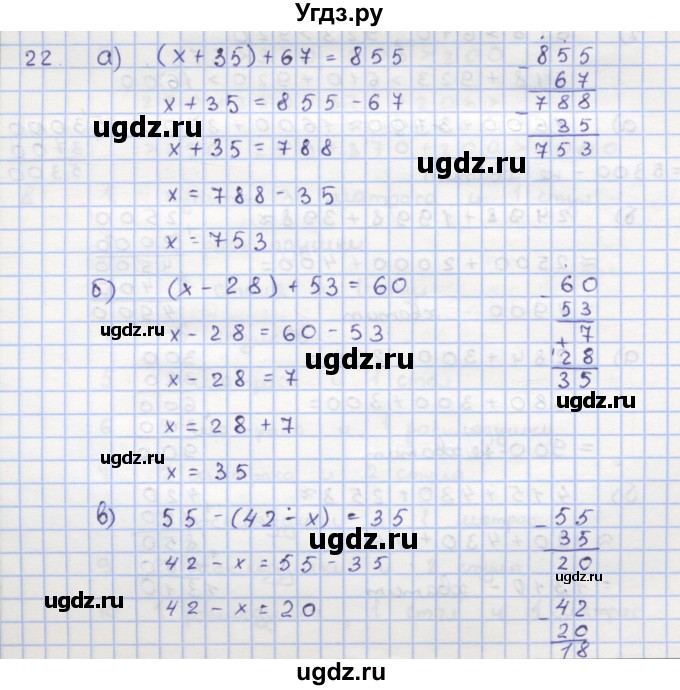 Угдз.ру
22. а) (x + 35) + 67 = 855
x + 35 = 855 - 67
ugdz.ru
x + 35 = 788
x = 788 - 35
x = 753
- 855
67
- 788
35
753
ugdz.ru
б) (x - 28) + 53 = 60
ugdz.ru
x - 28 = 60 - 53
x - 28 = 7
ugdz.ru
x = 28 + 7
x = 35
- 60
53
+ 7
28
35
ugdz.ru
в) 55 - (42 - x) = 35
ugdz.ru
42 - x = 55 - 35
ugdz.ru
42 - x = 20
ugdz.ru
- 55
35
20
ugdz.ru
- 42
20
18
ugdz.ru